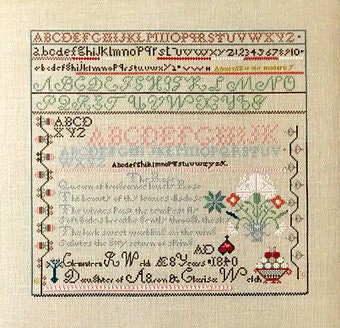 ABCDEFGHIJKLMNOPQRSTUVWXYZ
abcdefghijklmnopqrstuvwxyz 1234567890
abcdefghijklmnopqrstuvwxyz
ABCDEFGHIJKLMNO
PQRST UVWXYZ
ABCD
XYZ
ABCDEFGHIJK
LMNOPQRSTUV
WXYZ
Abcdefghijklmnopqrstuvwxyz&
The Rose
Queen of fragrance lovely Rose
The beauty of thy leaves disclose
The winters past the tempests fly
Soft gales breathe gently through the
The lark sweet warbling on the wing
Salutes the gay return of Spring
AD
R Weld Æ 8 Years 1840
Daughter of Aaron & Clarisa Weld